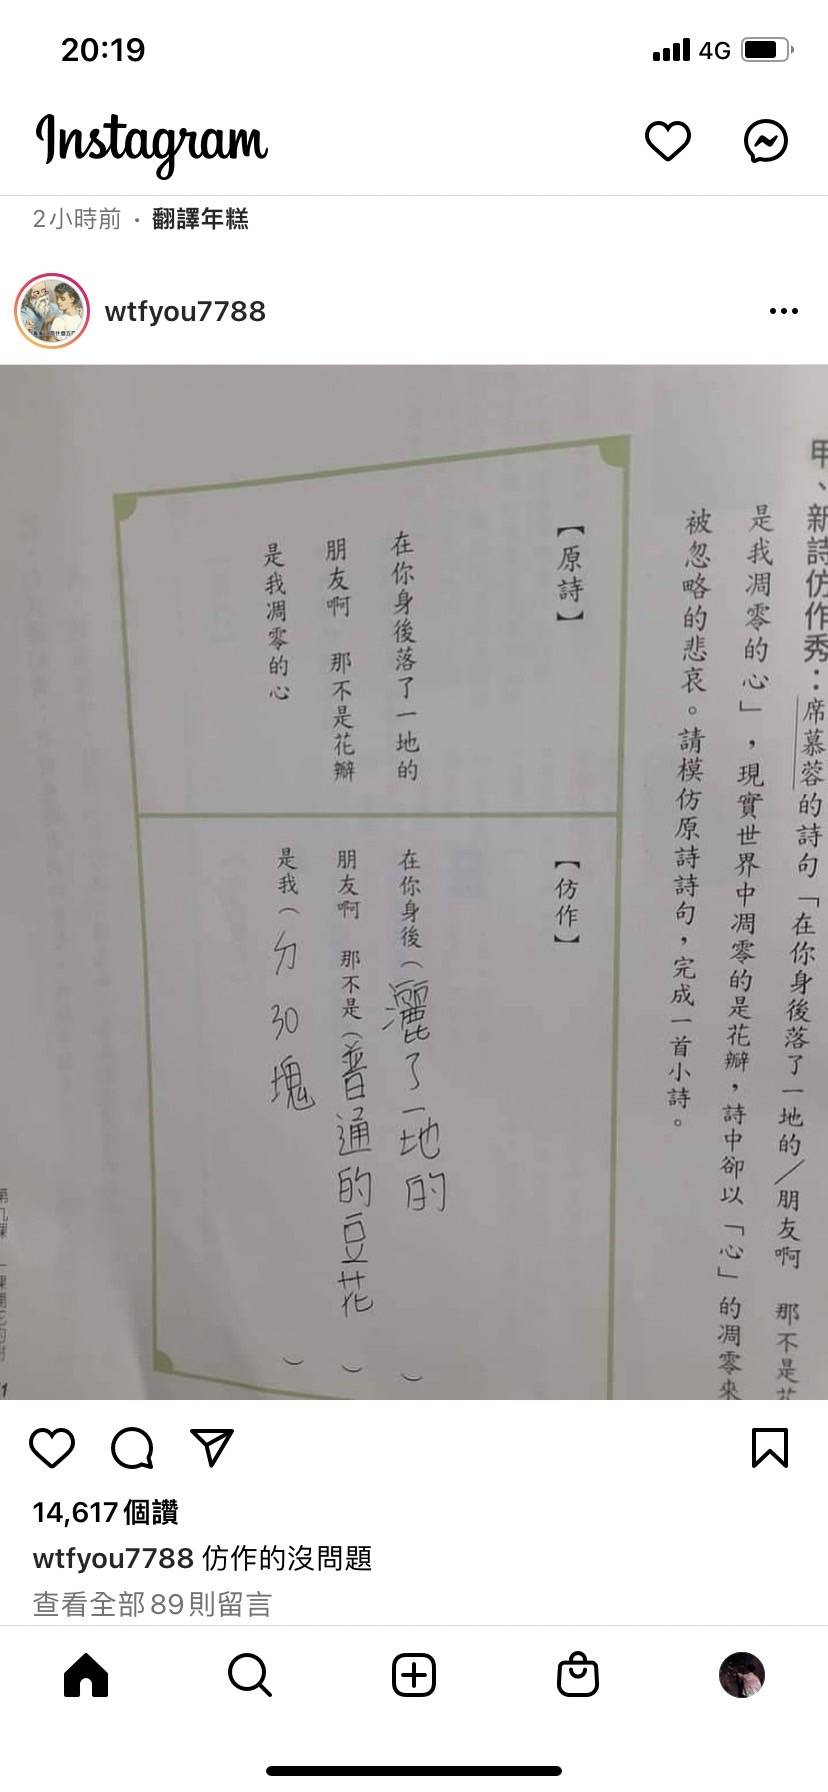 20:19
4G
Instagram
2小時前 · 翻譯年糕
wtfyou7788
甲、新詩仿作秀：席慕蓉的詩句「在你身後落了一地的／朋友啊　那不是花
是我凋零的心」，現實世界中凋零的是花瓣，詩中卻以「心」的凋零來
被忽略的悲哀。請模仿原詩詩句，完成一首小詩。
【原詩】
在你身後落了一地的
朋友啊　那不是花瓣
是我凋零的心
【仿作】
在你身後（灑了一地的）
朋友啊　那不是（普通的豆花）
是我（ㄉ30塊）
14,617個讚
wtfyou7788 仿作的沒問題
查看全部89則留言